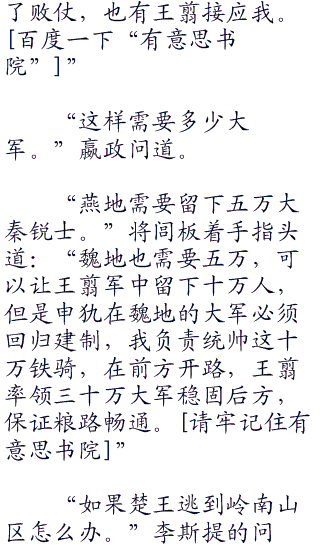 了败仗，也有王翦接应我。
[百度一下“有意思书
院”]”
“这样需要多少大
军。”嬴政问道。
“燕地需要留下五万大
秦锐士。”将闾板着手指头
道：“魏地也需要五万，可
以让王翦军中留下十万人，
但是申犰在魏地的大军必须
回归建制，我负责统帅这十
万铁骑，在前方开路，王翦
率领三十万大军稳固后方，
保证粮路畅通。[请牢记住有
意思书院]”
“如果楚王逃到岭南山
区怎么办。”李斯提的问